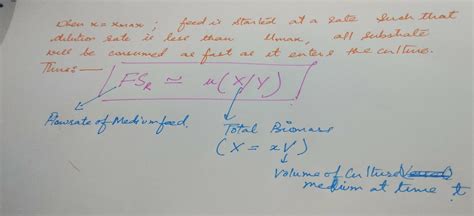 when x = xmax ; feed is started at a rate such that
dilution rate is less than μmax, all substrate
will be consumed as fast as it enters the culture.
Thus:—
FS_R ≃ μ(X/Y)
Flowrate of Medium feed.
Total Biomass
(X = xV)
Volume of Culture
medium at time t